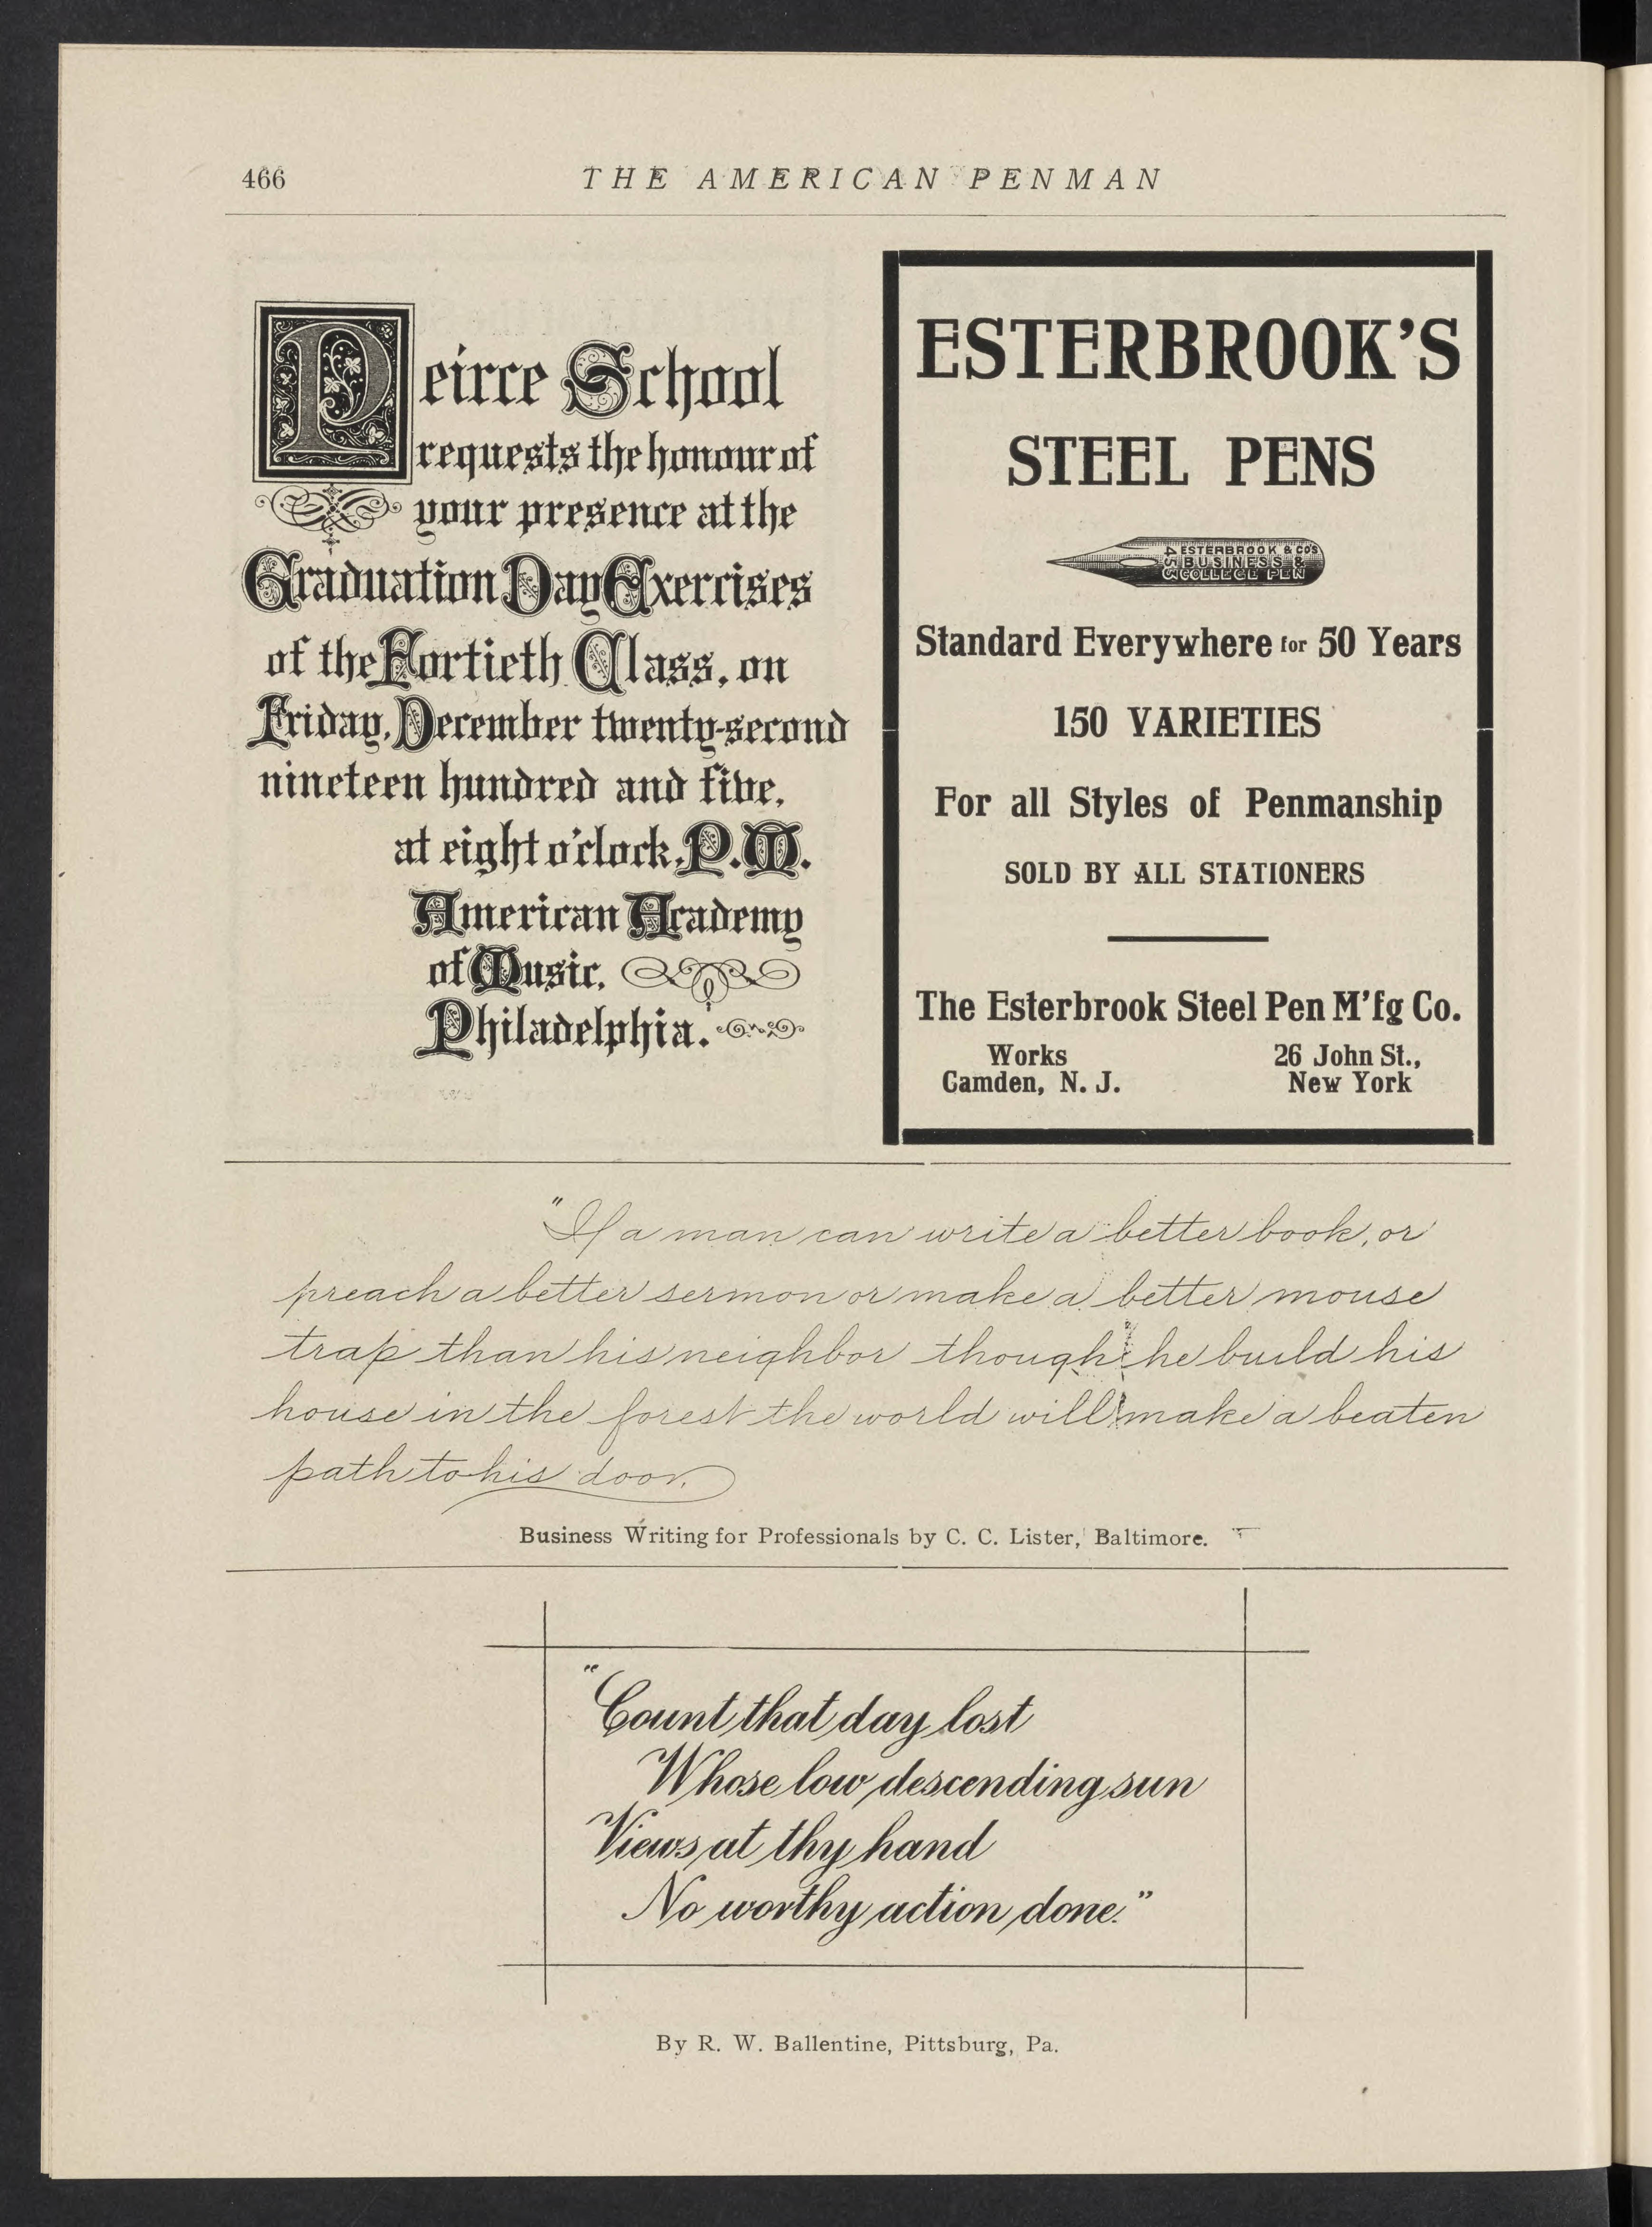 466
THE AMERICAN PENMAN
Peirce School
requests the honour of
your presence at the
Graduation Day Exercises
of the Fortieth Class, on
Friday, December twenty-second
nineteen hundred and five,
at eight o'clock, P.M.
American Academy
of Music,
Philadelphia.
ESTERBROOK'S
STEEL PENS
453
ESTERBROOK & CO'S
BUSINESS &
COLLEGE PEN
Standard Everywhere for 50 Years
150 VARIETIES
For all Styles of Penmanship
SOLD BY ALL STATIONERS
The Esterbrook Steel Pen M'fg Co.
Works
Camden, N. J.
26 John St.,
New York
"If a man can write a better book, or
preach a better sermon or make a better mouse
trap than his neighbor though he build his
house in the forest the world will make a beaten
path to his door.
Business Writing for Professionals by C. C. Lister, Baltimore.
"Count that day lost
Whose low descending sun
Views at thy hand
No worthy action done."
By R. W. Ballentine, Pittsburg, Pa.